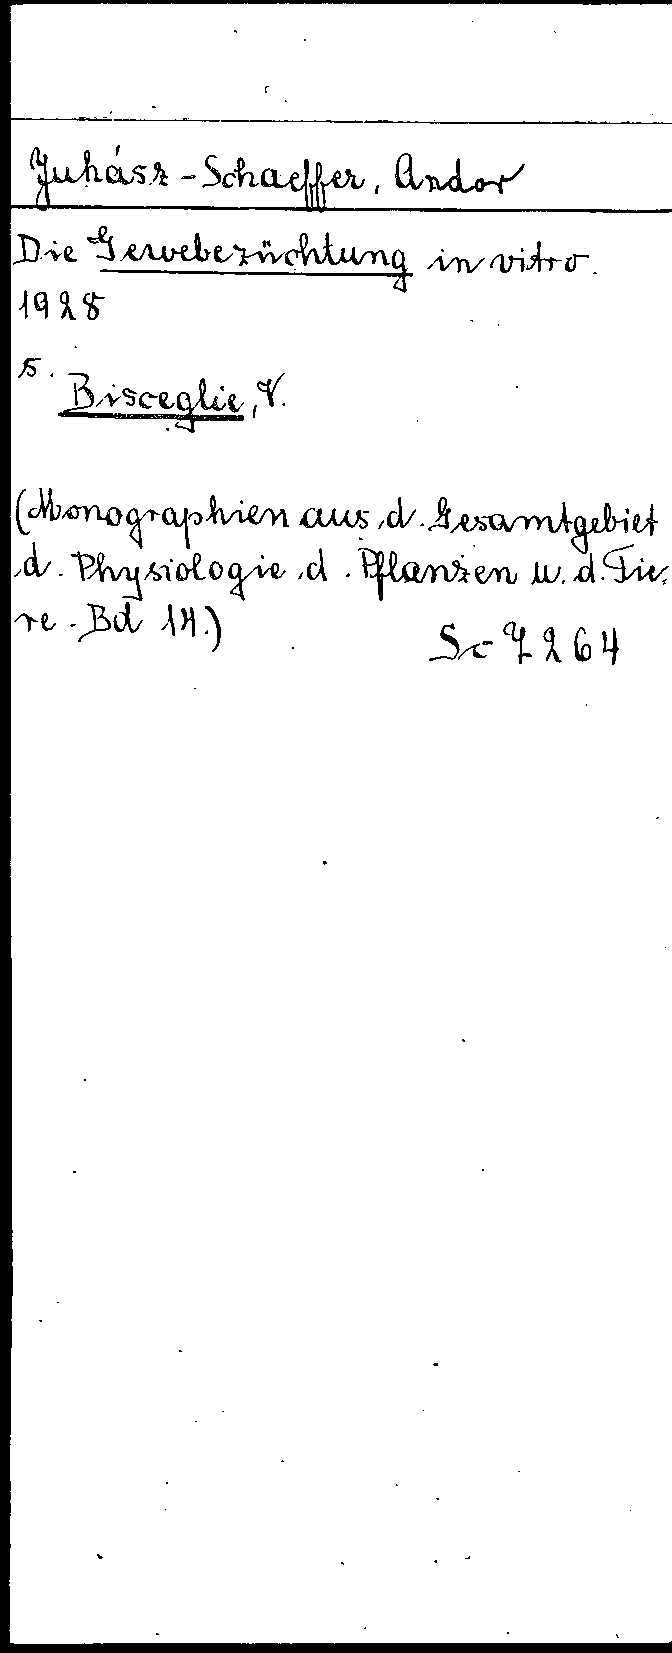 Juhász-Schaeffer, Andor
Die Gewebezüchtung in vitro.
1928
s.
Bisceglie, V.
(Monographien aus d. Gesamtgebiet
d. Physiologie d. Pflanzen u. d. Tie-
re. Bd 14.)
Sc 7264